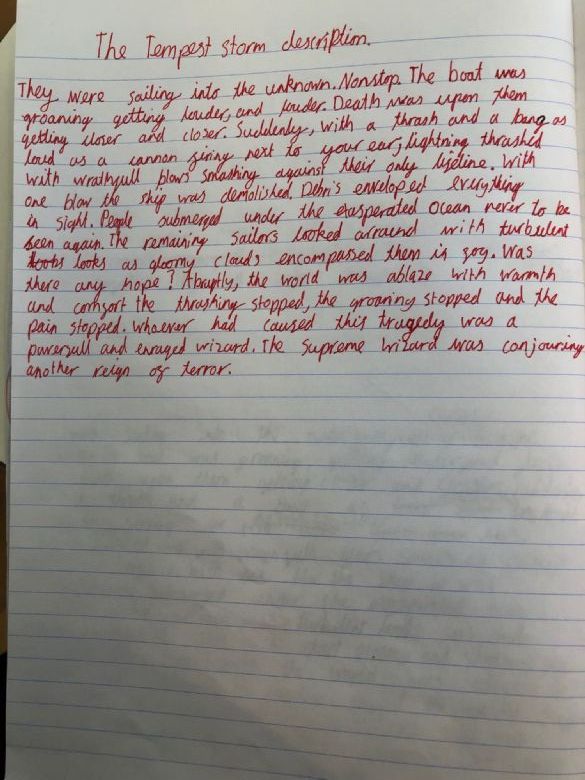 The Tempest storm description.
They were sailing into the unknown. Nonstop. The boat was
groaning getting louder, and louder. Death was upon them
getting closer and closer. Suddenly, with a thrash and a bang as
loud as a cannon firing next to your ear; lightning thrashed
with wrathfull blows smashing against their only lifeline. With
one blow the ship was demolished. Debris enveloped everything
in sight. People submerged under the exasperated Ocean never to be
seen again. The remaining sailors looked arraund with turbulent
looks as gloomy clouds encompassed them in fog. Was
there any hope? Abruptly, the world was ablaze with warmth
and comfort the thrashing stopped, the groaning stopped and the
pain stopped. Whoever had caused this tragedy was a
powerfull and enraged wizard. The Supreme Wizard was conjouring
another reign of terror.